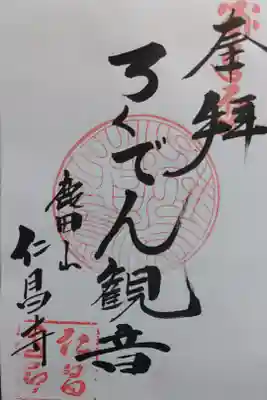 奉拝
ろくでん観音
鹿田山
仁昌寺
仁昌